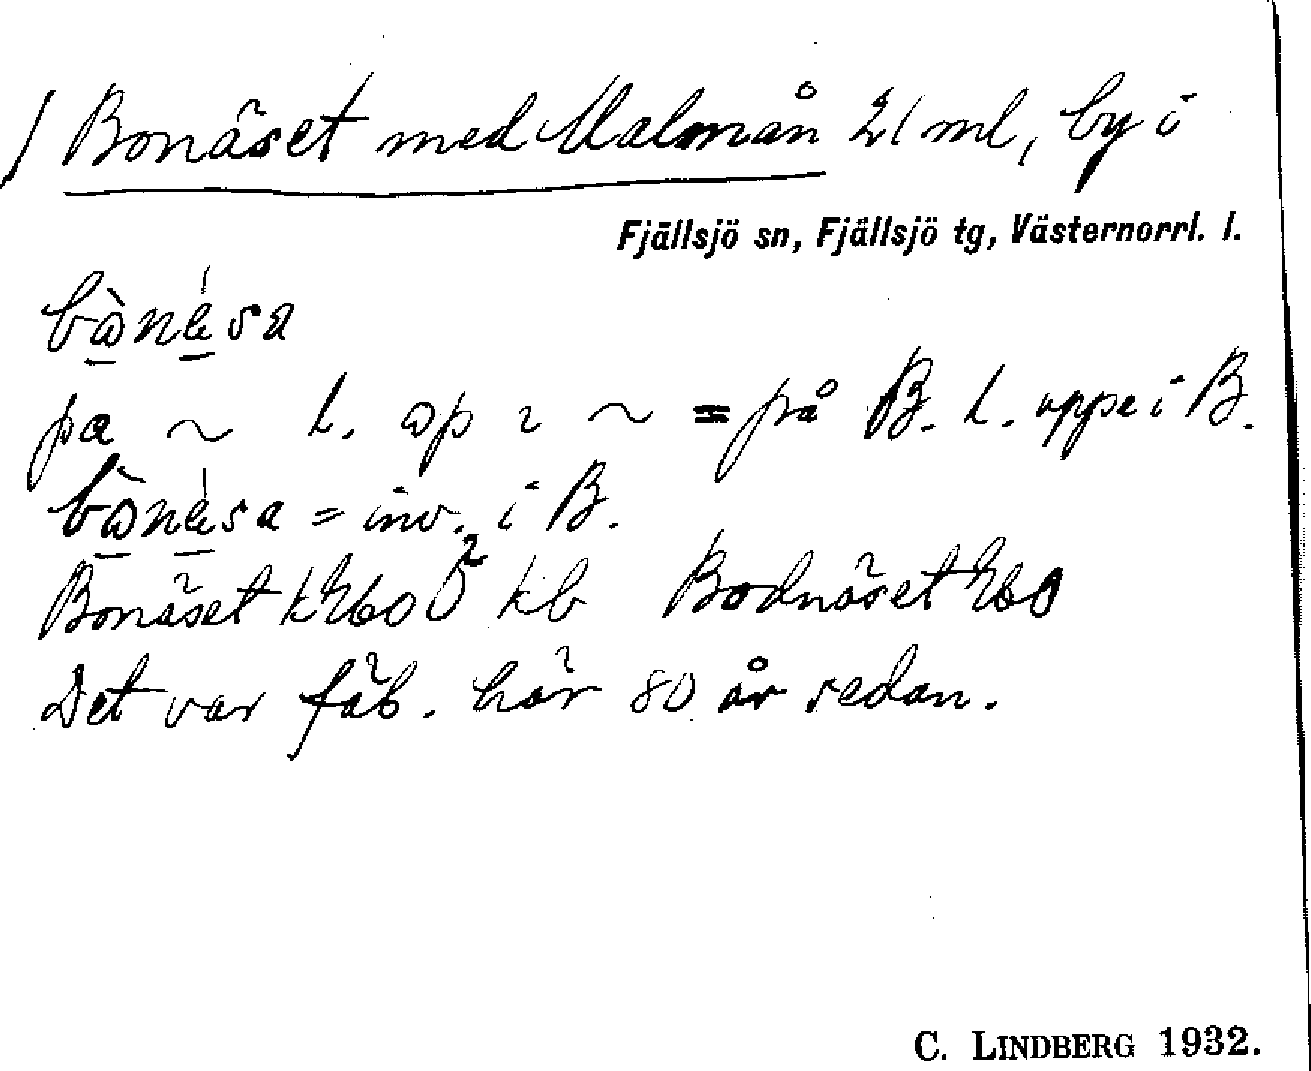 / Bonäset med Malmån 21 ml, by i
Fjällsjö sn, Fjällsjö tg, Västernorrl. l.
bònésa
pa ~ l. op ı ~ = på B. l. uppe i B.
bònésa = inv. i B.
Bonäset kb Bodnäset
Det var fäb. här 80 år sedan.
C. LINDBERG 1932.